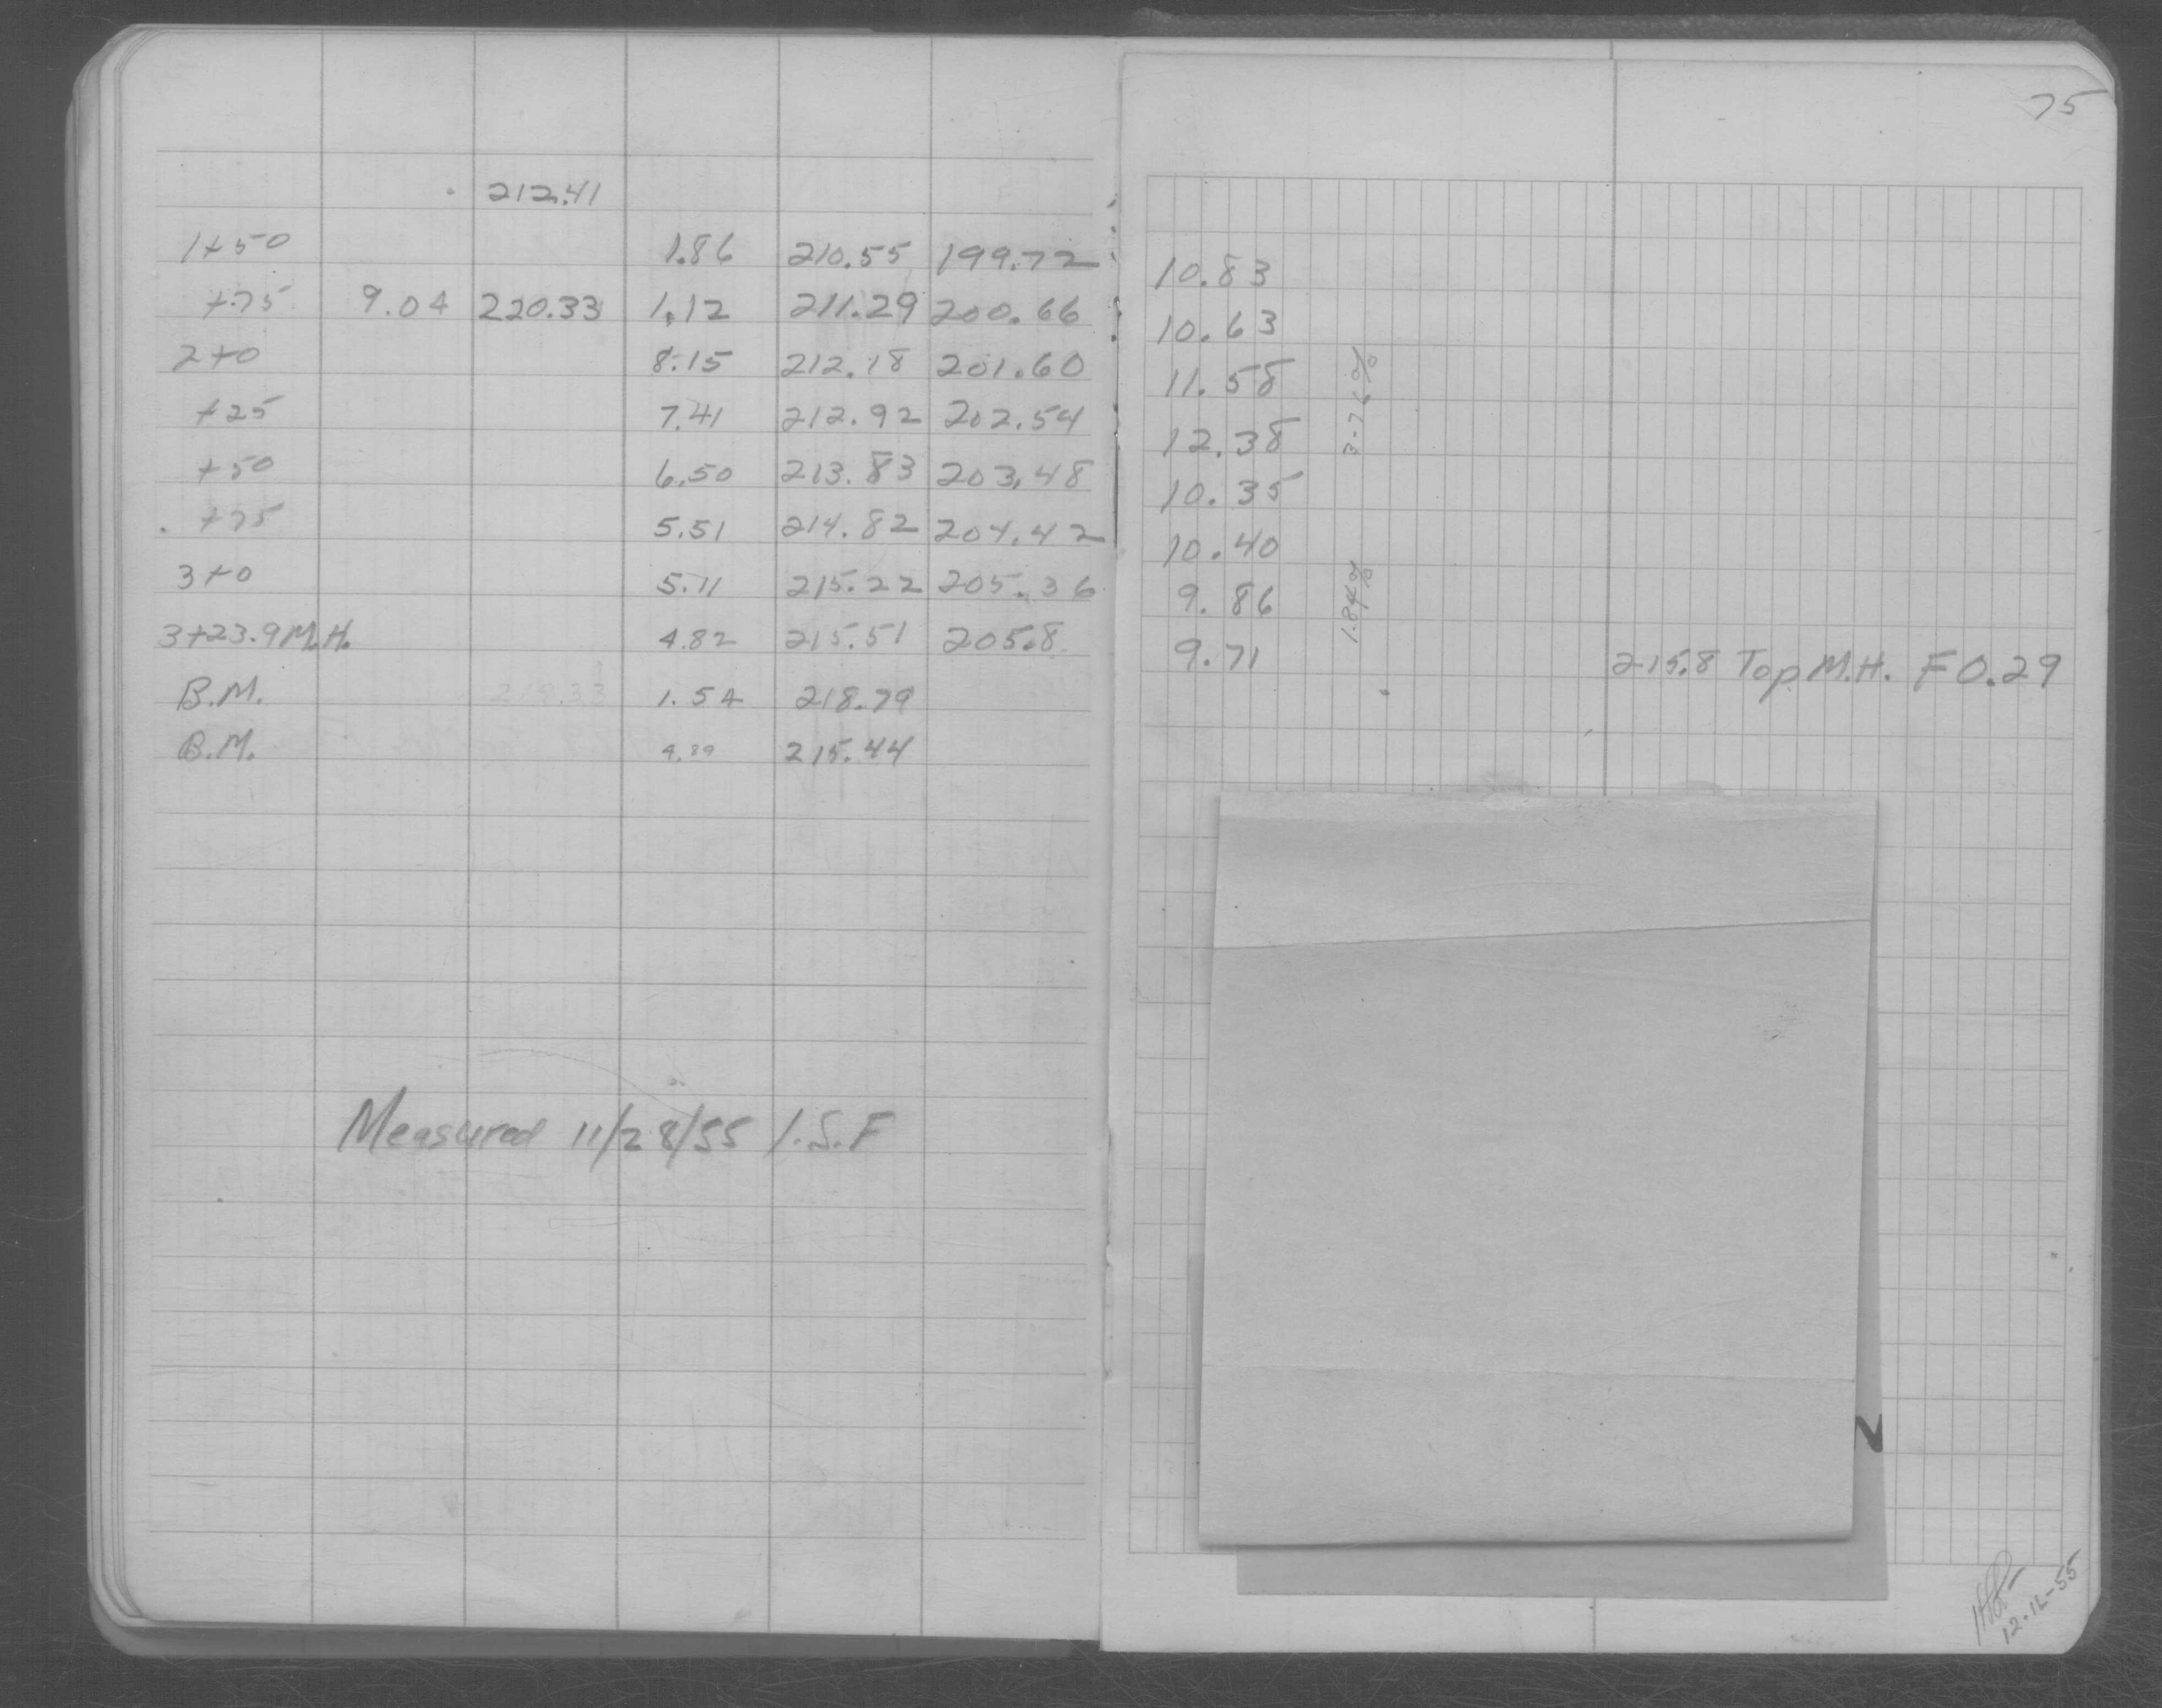 75
212.41
1+50 1.86 210.55 199.72 10.83
+75 9.04 220.33 1.12 211.29 200.66 10.63
2+0 8.15 212.18 201.60 11.58
+25 7.41 212.92 202.54 12.38
+50 6.50 213.83 203.48 10.35
+75 5.51 214.82 204.42 10.40
3+0 5.11 215.22 205.36 9.86
3+23.9 M.H. 4.82 215.51 205.8 9.71 215.8 Top M.H. F 0.29
3.76%
1.84%
B.M. 219.33 1.54 218.79
B.M. 4.89 215.44
Measured 11/28/55 I.S.F
12-12-55